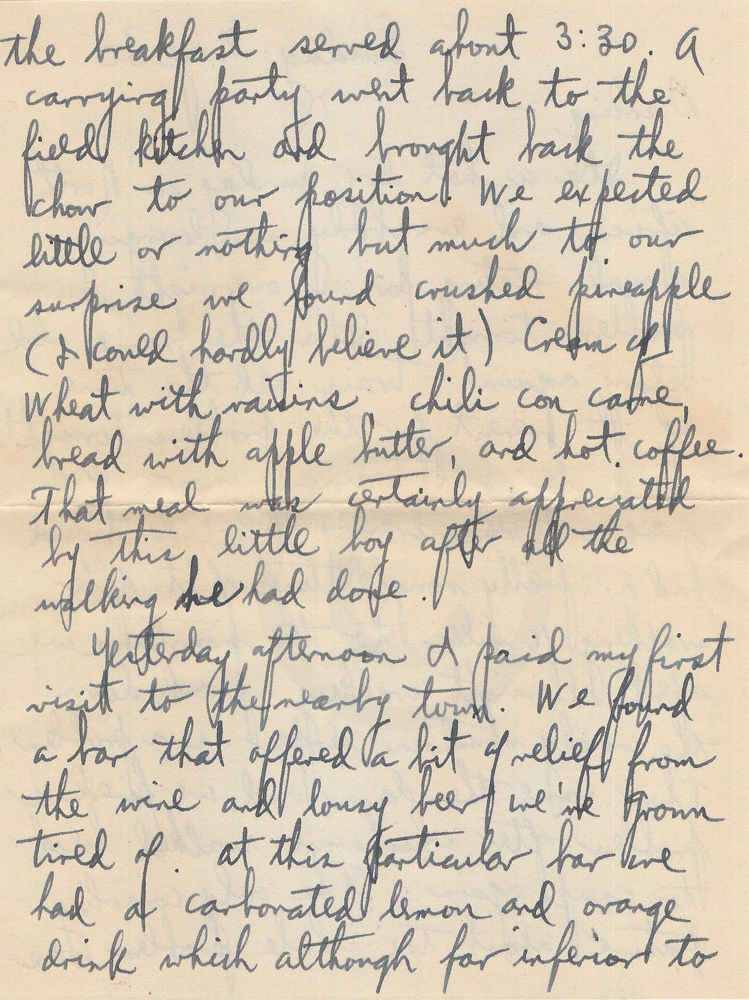 the breakfast served about 3:30. A
carrying party went back to the
field kitchen and brought back the
chow to our position. We expected
little or nothing but much to our
surprise we found crushed pineapple
(I could hardly believe it) Cream of
Wheat with raisins chili con carne,
bread with apple butter, and hot coffee.
That meal was certainly appreciated
by this little boy after all the
walking he had done.
Yesterday afternoon I paid my first
visit to the nearby town. We found
a bar that offered a bit of relief from
the wine and lousy beer we've grown
tired of. at this particular bar we
had a carbonated lemon and orange
drink which although far inferior to